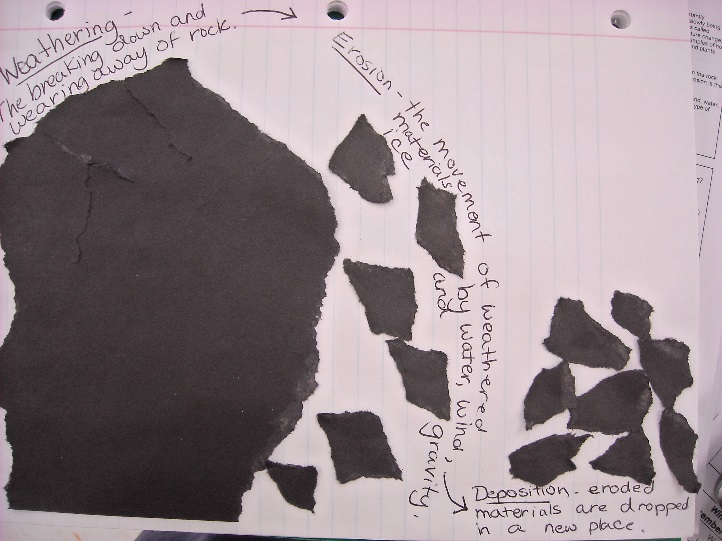 Weathering -
The breaking down and
wearing away of rock.
Erosion - the movement of weathered
materials by water, wind,
ice and gravity.
Deposition - eroded
materials are dropped
in a new place.